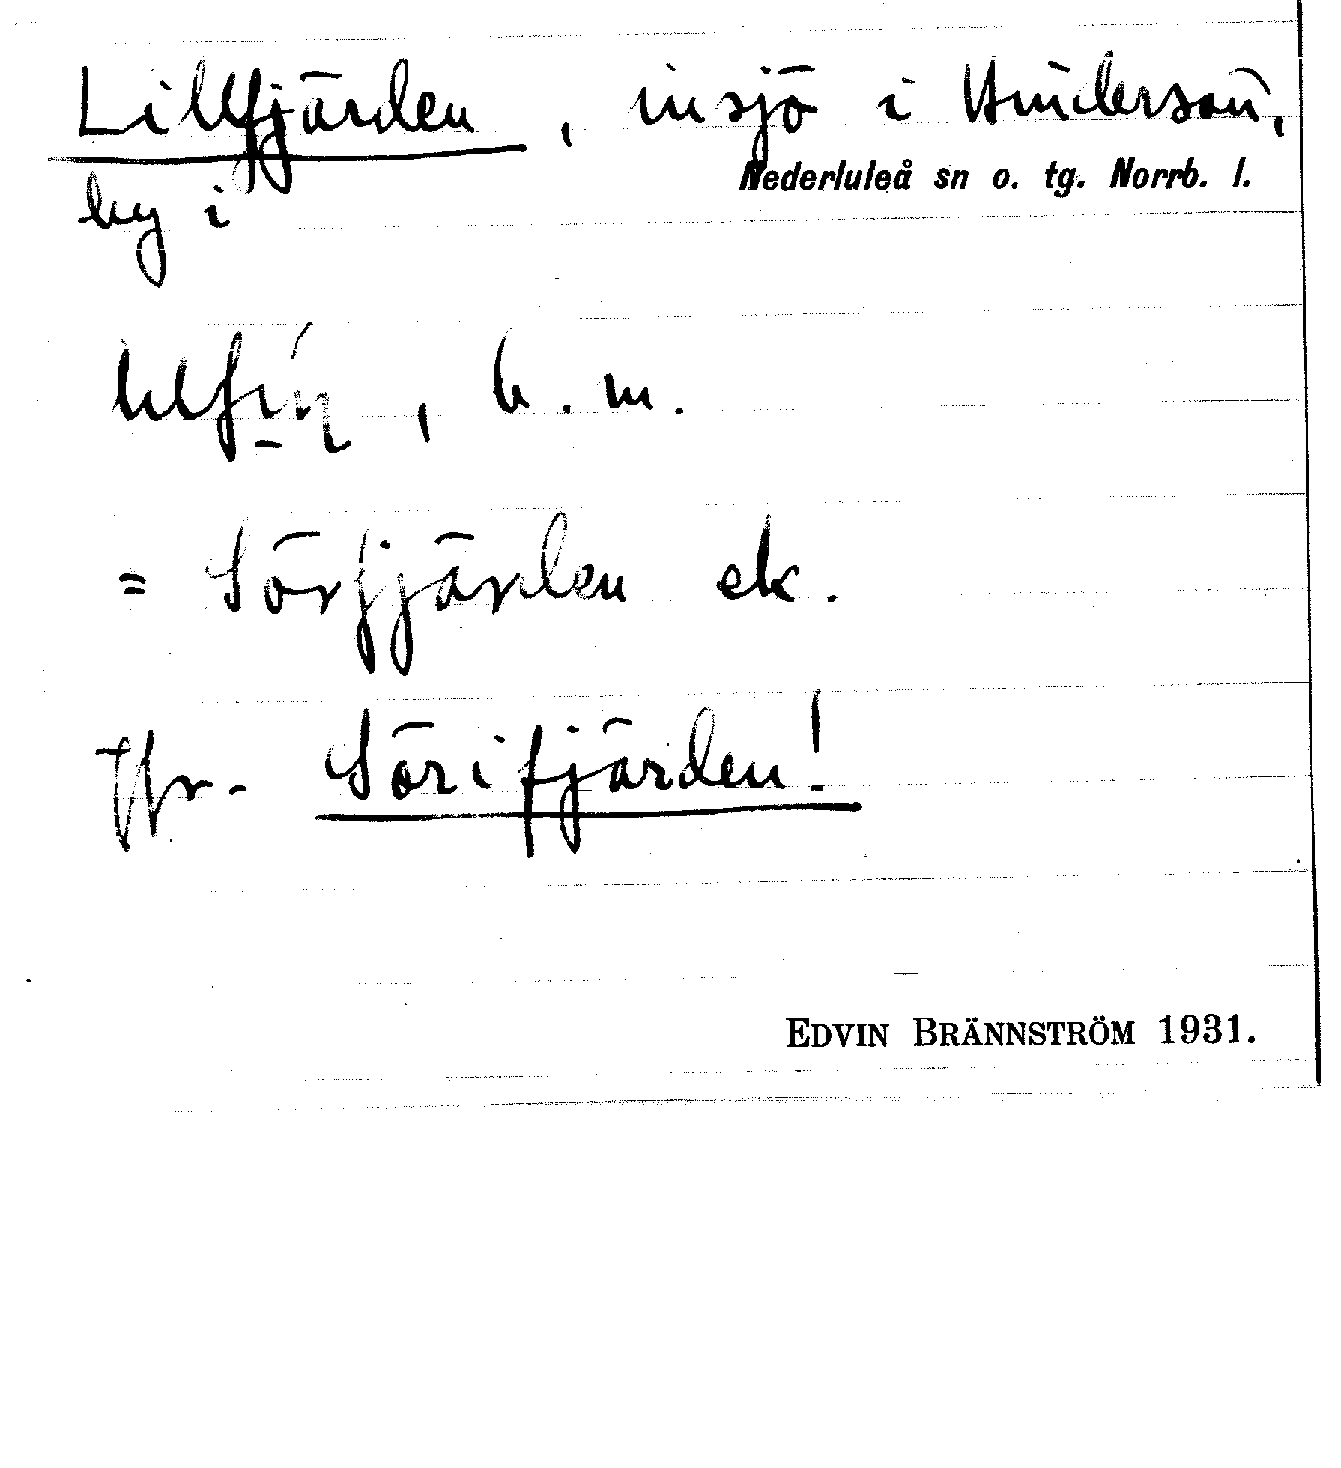 Lillfjärden, insjö i Hindersön,
Nederluleå sn o. tg. Norrb. l.
by i
b. m.
= Sörfjärden ek.
Jfr. Sörifjärden!
EDVIN BRÄNNSTRÖM 1931.